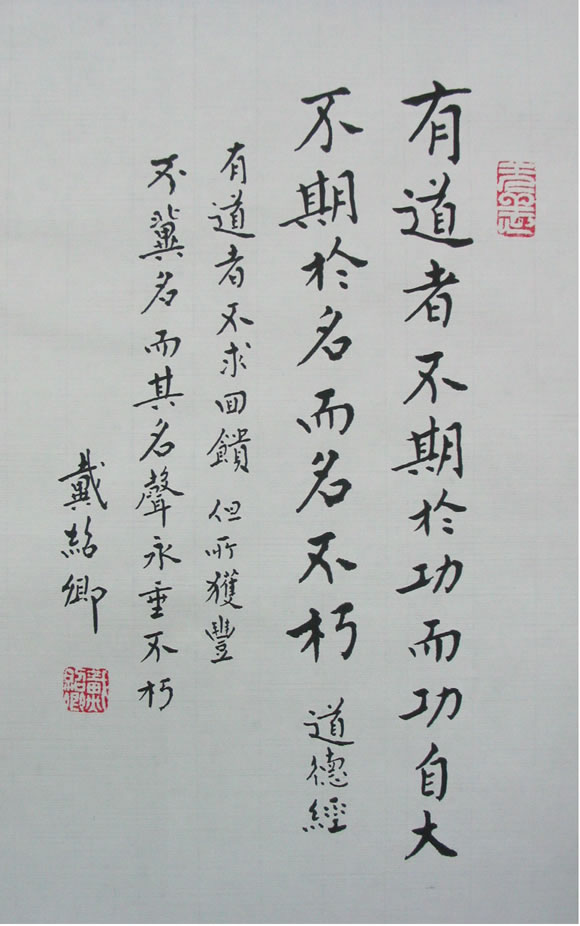 有道者不期於功而功自大
不期於名而名不朽 道德經
有道者不求回饋 但所獲豐
不冀名而其名聲永垂不朽
戴紹卿
戴紹卿